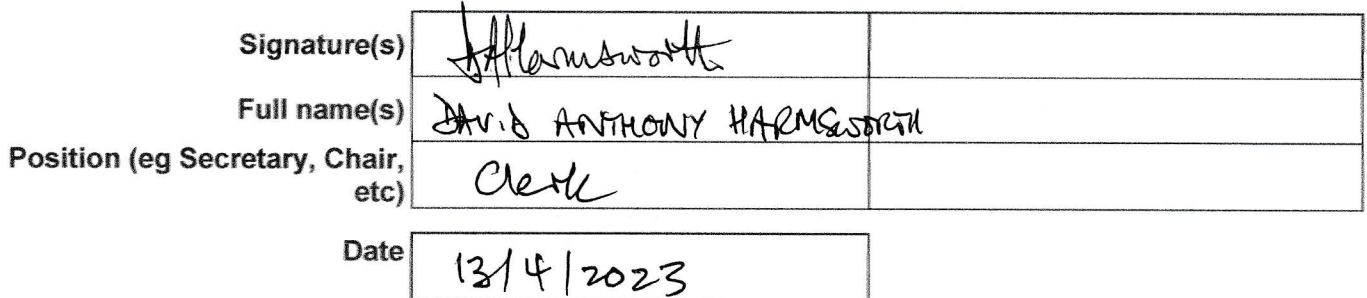 Signature(s) DAHarmsworth
Full name(s) DAVID ANTHONY HARMSWORTH
Position (eg Secretary, Chair,
etc) Clerk
Date 13/4/2023